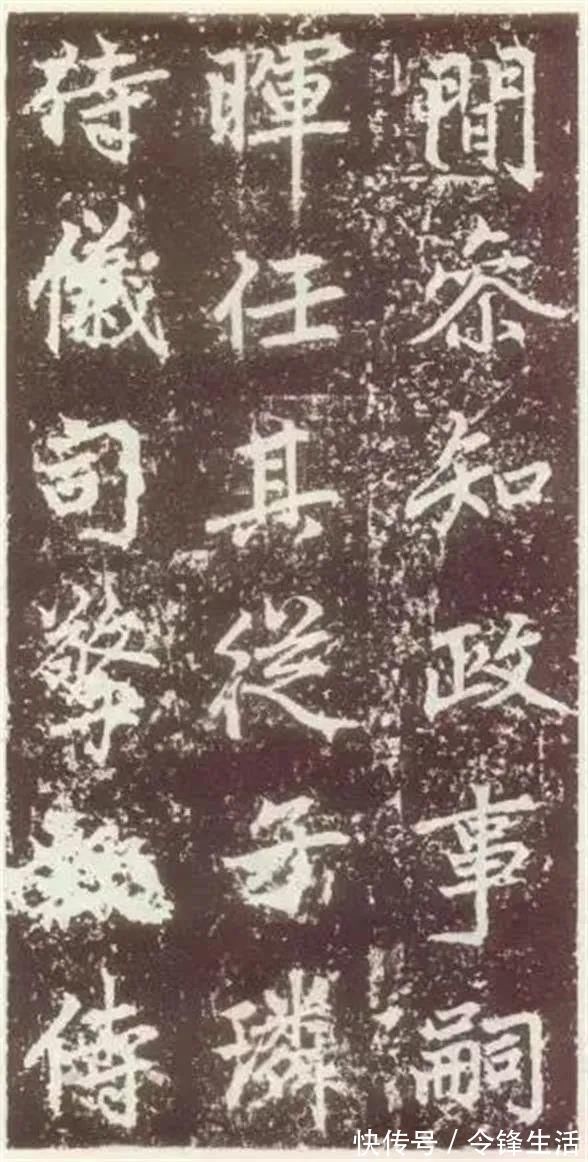 間叅知政事嗣
暉任其從子璘
持儀司擎傳
快传号/令锋生活